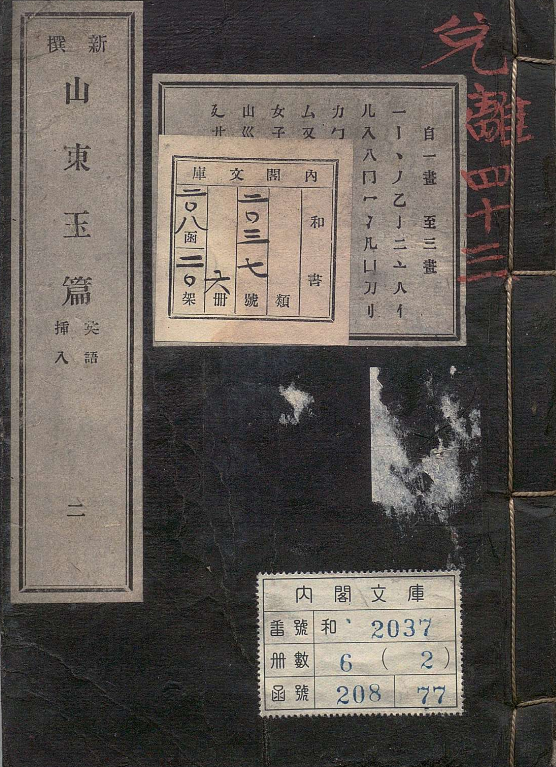 新撰
山東玉篇
英語
挿入
二
兌離四十三
自一畫 至三畫
一丨丶丿乙亅二亠人亻
儿入八冂冖冫几凵刀刂
力勹
厶又
女子
山巛
廴廾
內閣文庫
和書類
二〇三七號
六冊
二〇八函
二〇架
內閣文庫
番號 和 2037
册數 6 (2)
函號 208 77